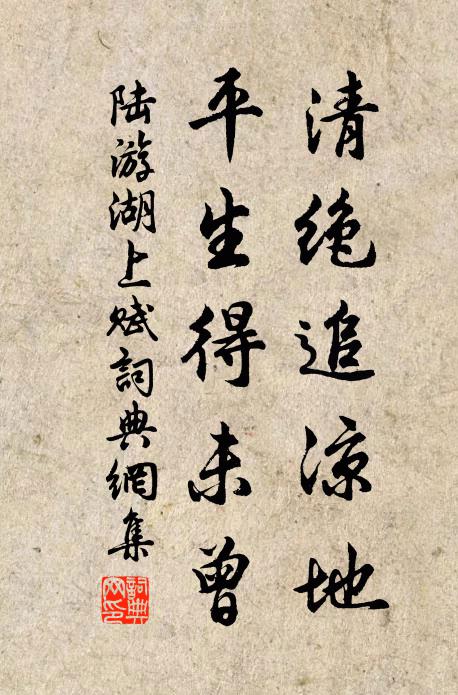 清绝追凉地
平生得未曾
陆游湖上赋詞典網集
詞典网印